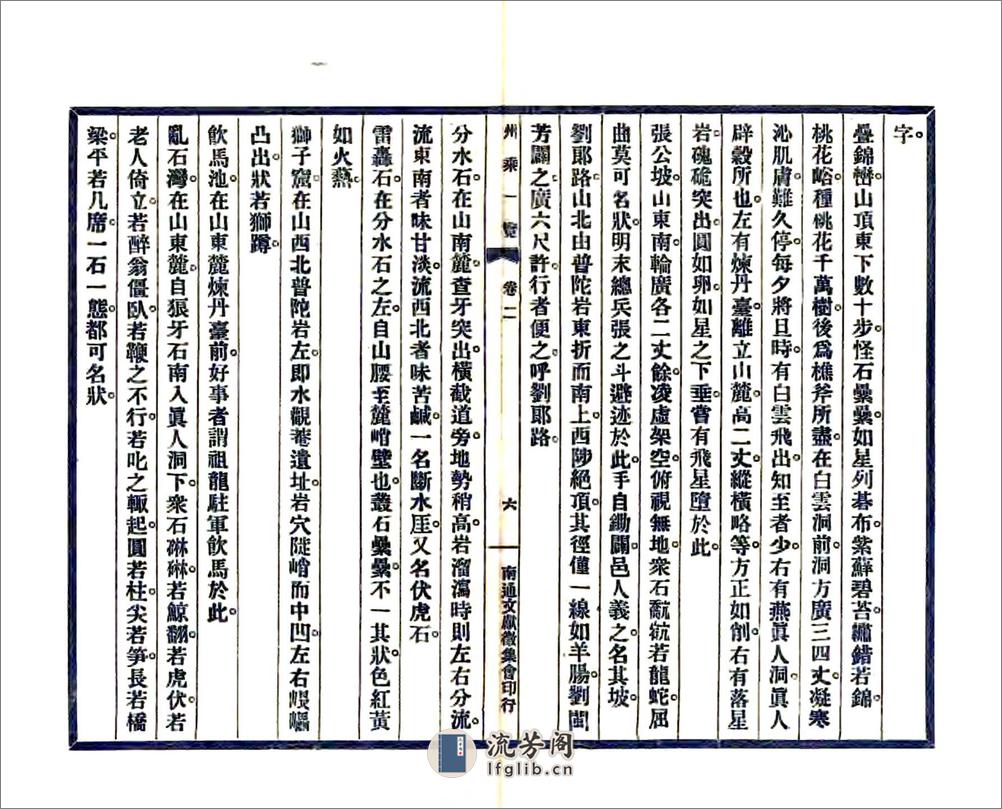 字。
疊錦巒山頂東下數十步。怪石纍纍。如星列碁布。紫蘚碧苔。繡錯若錦。
桃花峪種桃花千萬樹。後爲樵斧所盡。在白雲洞前。洞方廣三四丈。凝寒
沁肌膚。難久停。每夕將旦時。有白雲飛出。知至者少。右有燕眞人洞。眞人
辟穀所也。左有煉丹臺。離立山麓。高二丈。縱橫略等。方正如削。右有落星
岩。磈硊突出。圓如卵。如星之下垂。嘗有飛星墮於此。
張公坡山東南。輪廣各二丈餘。凌虛架空。俯視無地。衆石巃嵸。若龍蛇屈
曲。莫可名狀。明末總兵張之斗避迹於此。手自鋤闢。邑人義之。名其坡。
劉郎路山北由普陀岩東折而南上。西陟絕頂。其徑僅一線。如羊腸。劉聞
芳闢之。廣六尺許。行者便之。呼劉郎路。
州乘一覽 卷二 六 南通文獻徵集會印行
分水石在山南麓。查牙突出。橫截道旁。地勢稍高。岩溜瀉時。則左右分流。
流東南者味甘淡。流西北者味苦鹹。一名斷水厓。又名伏虎石。
雷轟石在分水石之左。自山腰至麓。峭壁也。叢石纍纍。不一其狀。色紅黃
如火爇。
獅子窟在山西北普陀岩左。即水觀菴遺址。岩穴陡峭而中凹。左右
凸出。狀若獅蹲。
飲馬池在山東麓煉丹臺前。好事者謂祖龍駐軍飲馬於此。
亂石灣在山東麓。自狼牙石南入眞人洞下。衆石硦硦。若鯨翻。若虎伏。若
老人倚立。若醉翁僵臥。若鞭之不行。若叱之輒起。圓若柱。尖若笋。長若橋
梁。平若几席。一石一態。都可名狀。
流芳阁
lfglib.cn